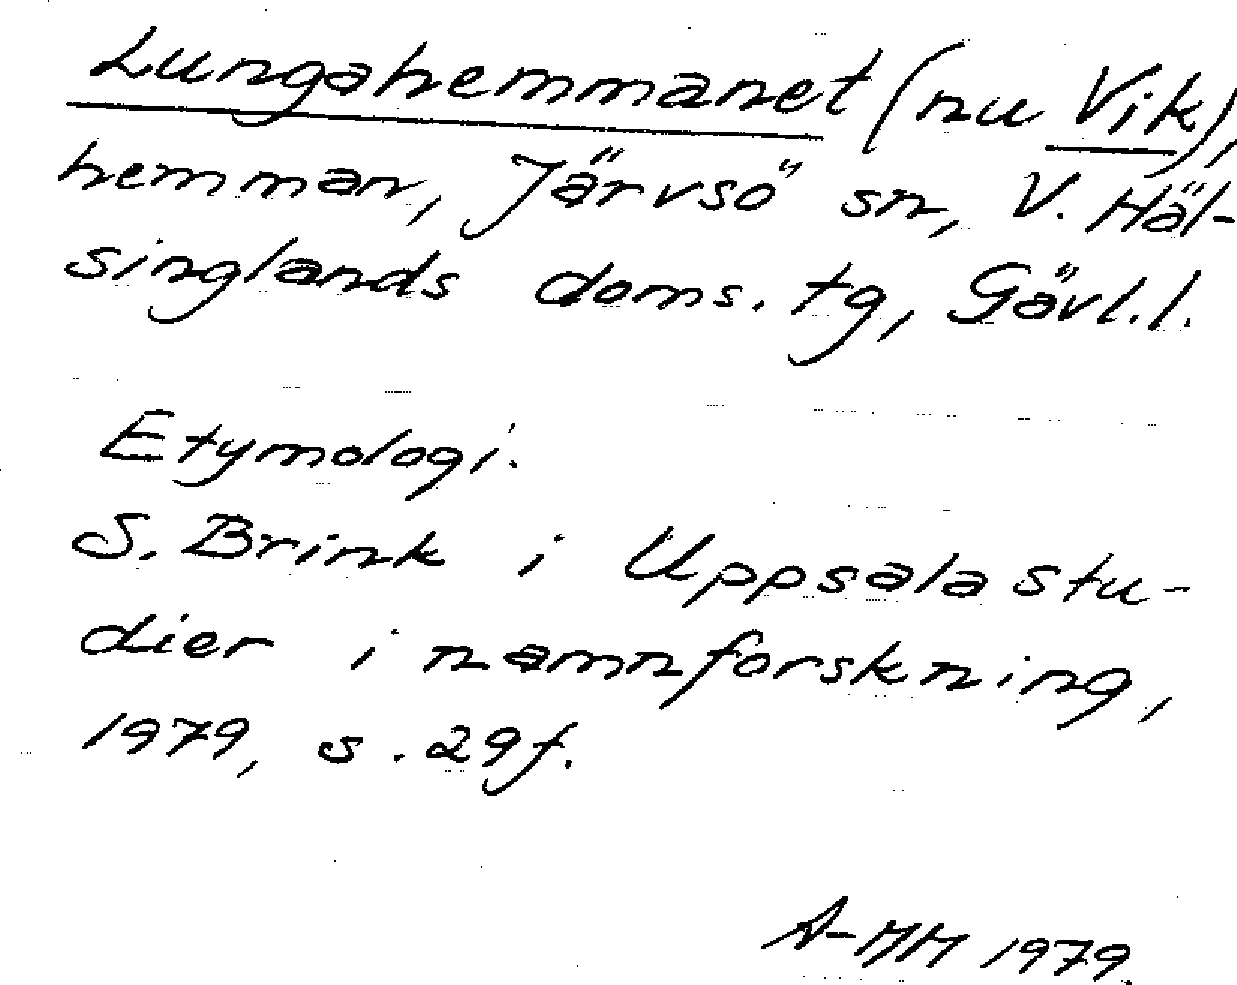 Lungahemmanet (nu Vik),
hemman, Järvsö sn, V. Häl-
singlands doms.tg, Gävl.l.
Etymologi.
S. Brink i Uppsalastu-
dier i namnforskning,
1979, s. 29f.
A-MM 1979.